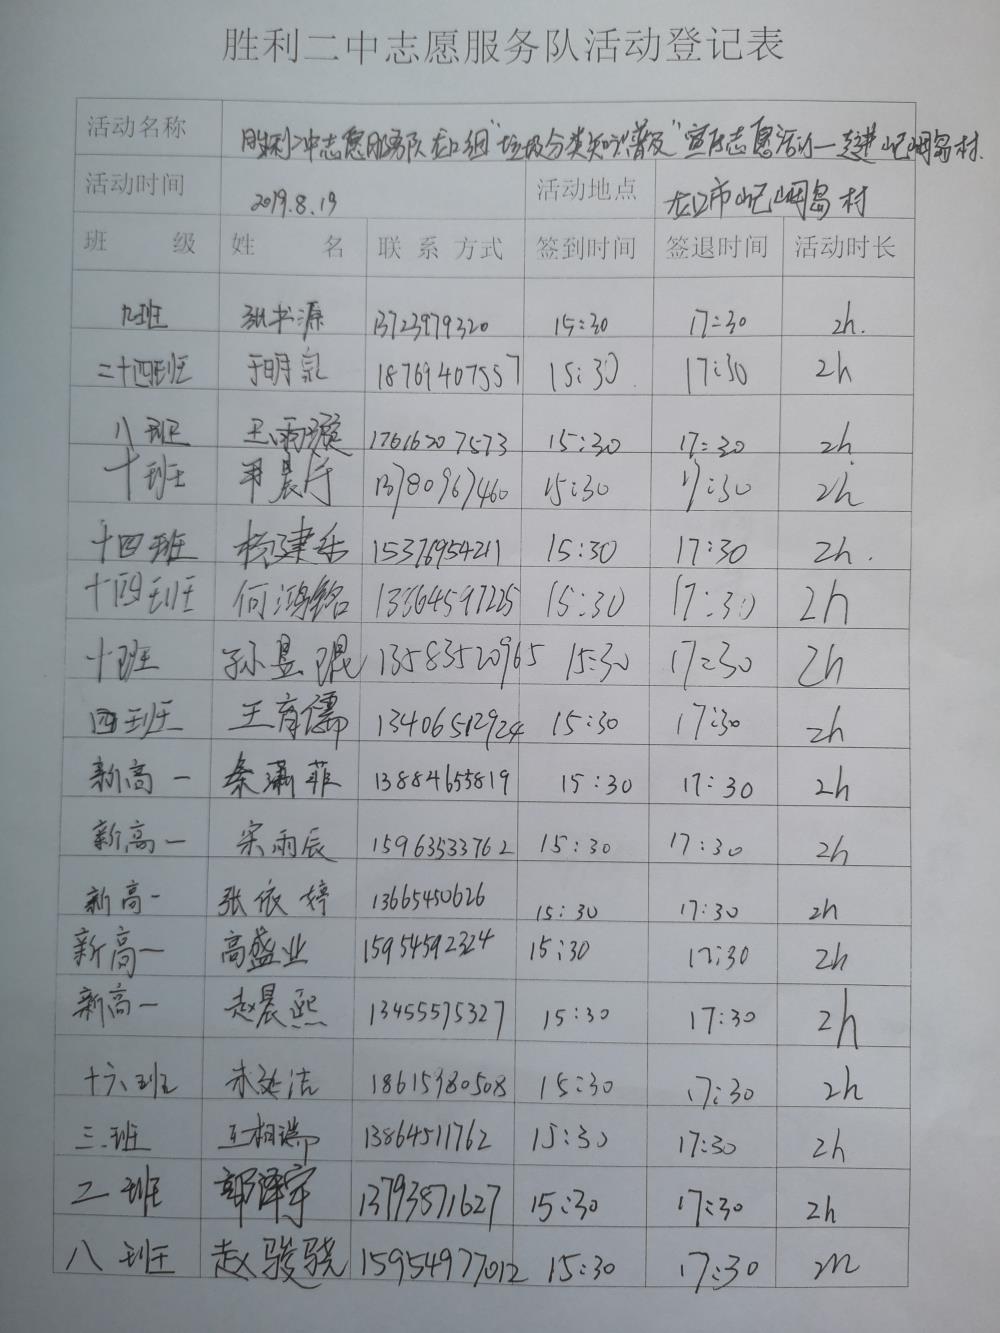 胜利二中志愿服务队活动登记表
活动名称 胜利二中志愿服务队龙口组"垃圾分类知识普及"宣传志愿活动—走进屺㟂岛村.
活动时间 2019.8.19 活动地点 龙口市屺㟂岛村
班 级 姓 名 联系方式 签到时间 签退时间 活动时长
九班 张书源 13723979320 15:30 17:30 2h.
二十四班 于明泉 18769407557 15:30 17:30 2h
八班 王雨璇 17616207573 15:30 17:30 2h
十班 晨 13780967460 15:30 17:30 2h
十四班 杨建岳 15376954211 15:30 17:30 2h.
十四班 何鸿铭 13864597225 15:30 17:30 2h
十班 孙昱琨 13583520965 15:30 17:30 2h
四班 王育儒 13406512924 15:30 17:30 2h
新高一 秦潇菲 13884655819 15:30 17:30 2h
新高一 宋雨辰 15963533762 15:30 17:30 2h
新高一 张依婷 13665450626 15:30 17:30 2h
新高一 高盛业 15954592324 15:30 17:30 2h
新高一 赵晨熙 13455575327 15:30 17:30 2h
十六班 洁 18615980508 15:30 17:30 2h
三班 王相瑞 13864511762 15:30 17:30 2h
二班 郭泽宇 13793871627 15:30 17:30 2h
八班 赵骏骁 15954977012 15:30 17:30 2h